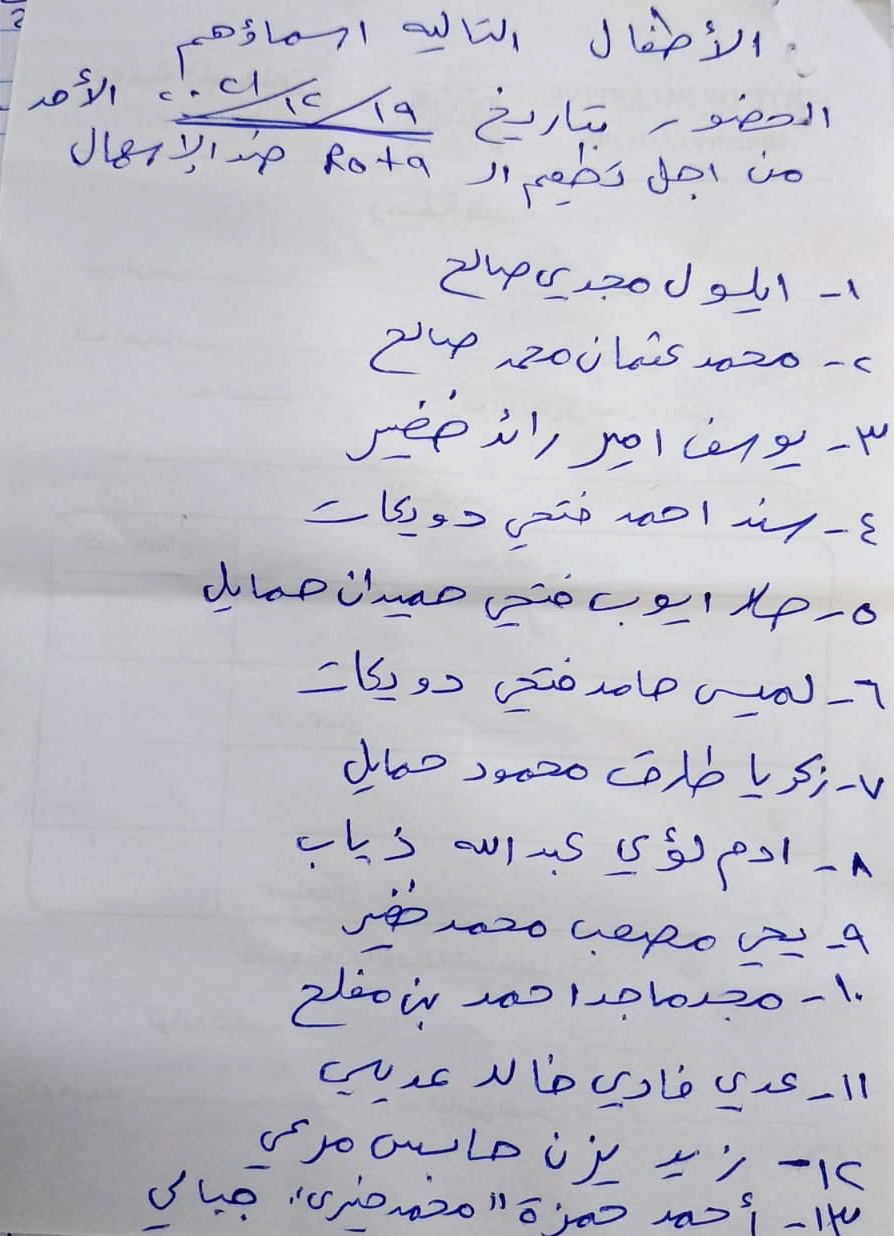 الأطفال التاليه اسماؤهم
الحضور بتاريخ ١٩/١٢/٢٠٢١ الأحد
من اجل تطعيم ال Rota ضد الإسهال
١- ايلول مجدي صالح
٢- محمد عثمان محمد صالح
٣- يوسف امير رائد خضير
٤- سند احمد فتحي دويكات
٥- حلا ايوب فتحي حميدان حمايل
٦- لميس حامد فتحي دويكات
٧- زكريا طارق محمود حمايل
٨- ادم لؤي عبد الله ذياب
٩- يحي مصعب محمد خضير
١٠- مجد ماجد احمد بني مفلح
١١- عدي فادي خالد عديلي
١٢- زيد يزن مرعي
١٣- أحمد حمزة "محمد خيري" جبالي